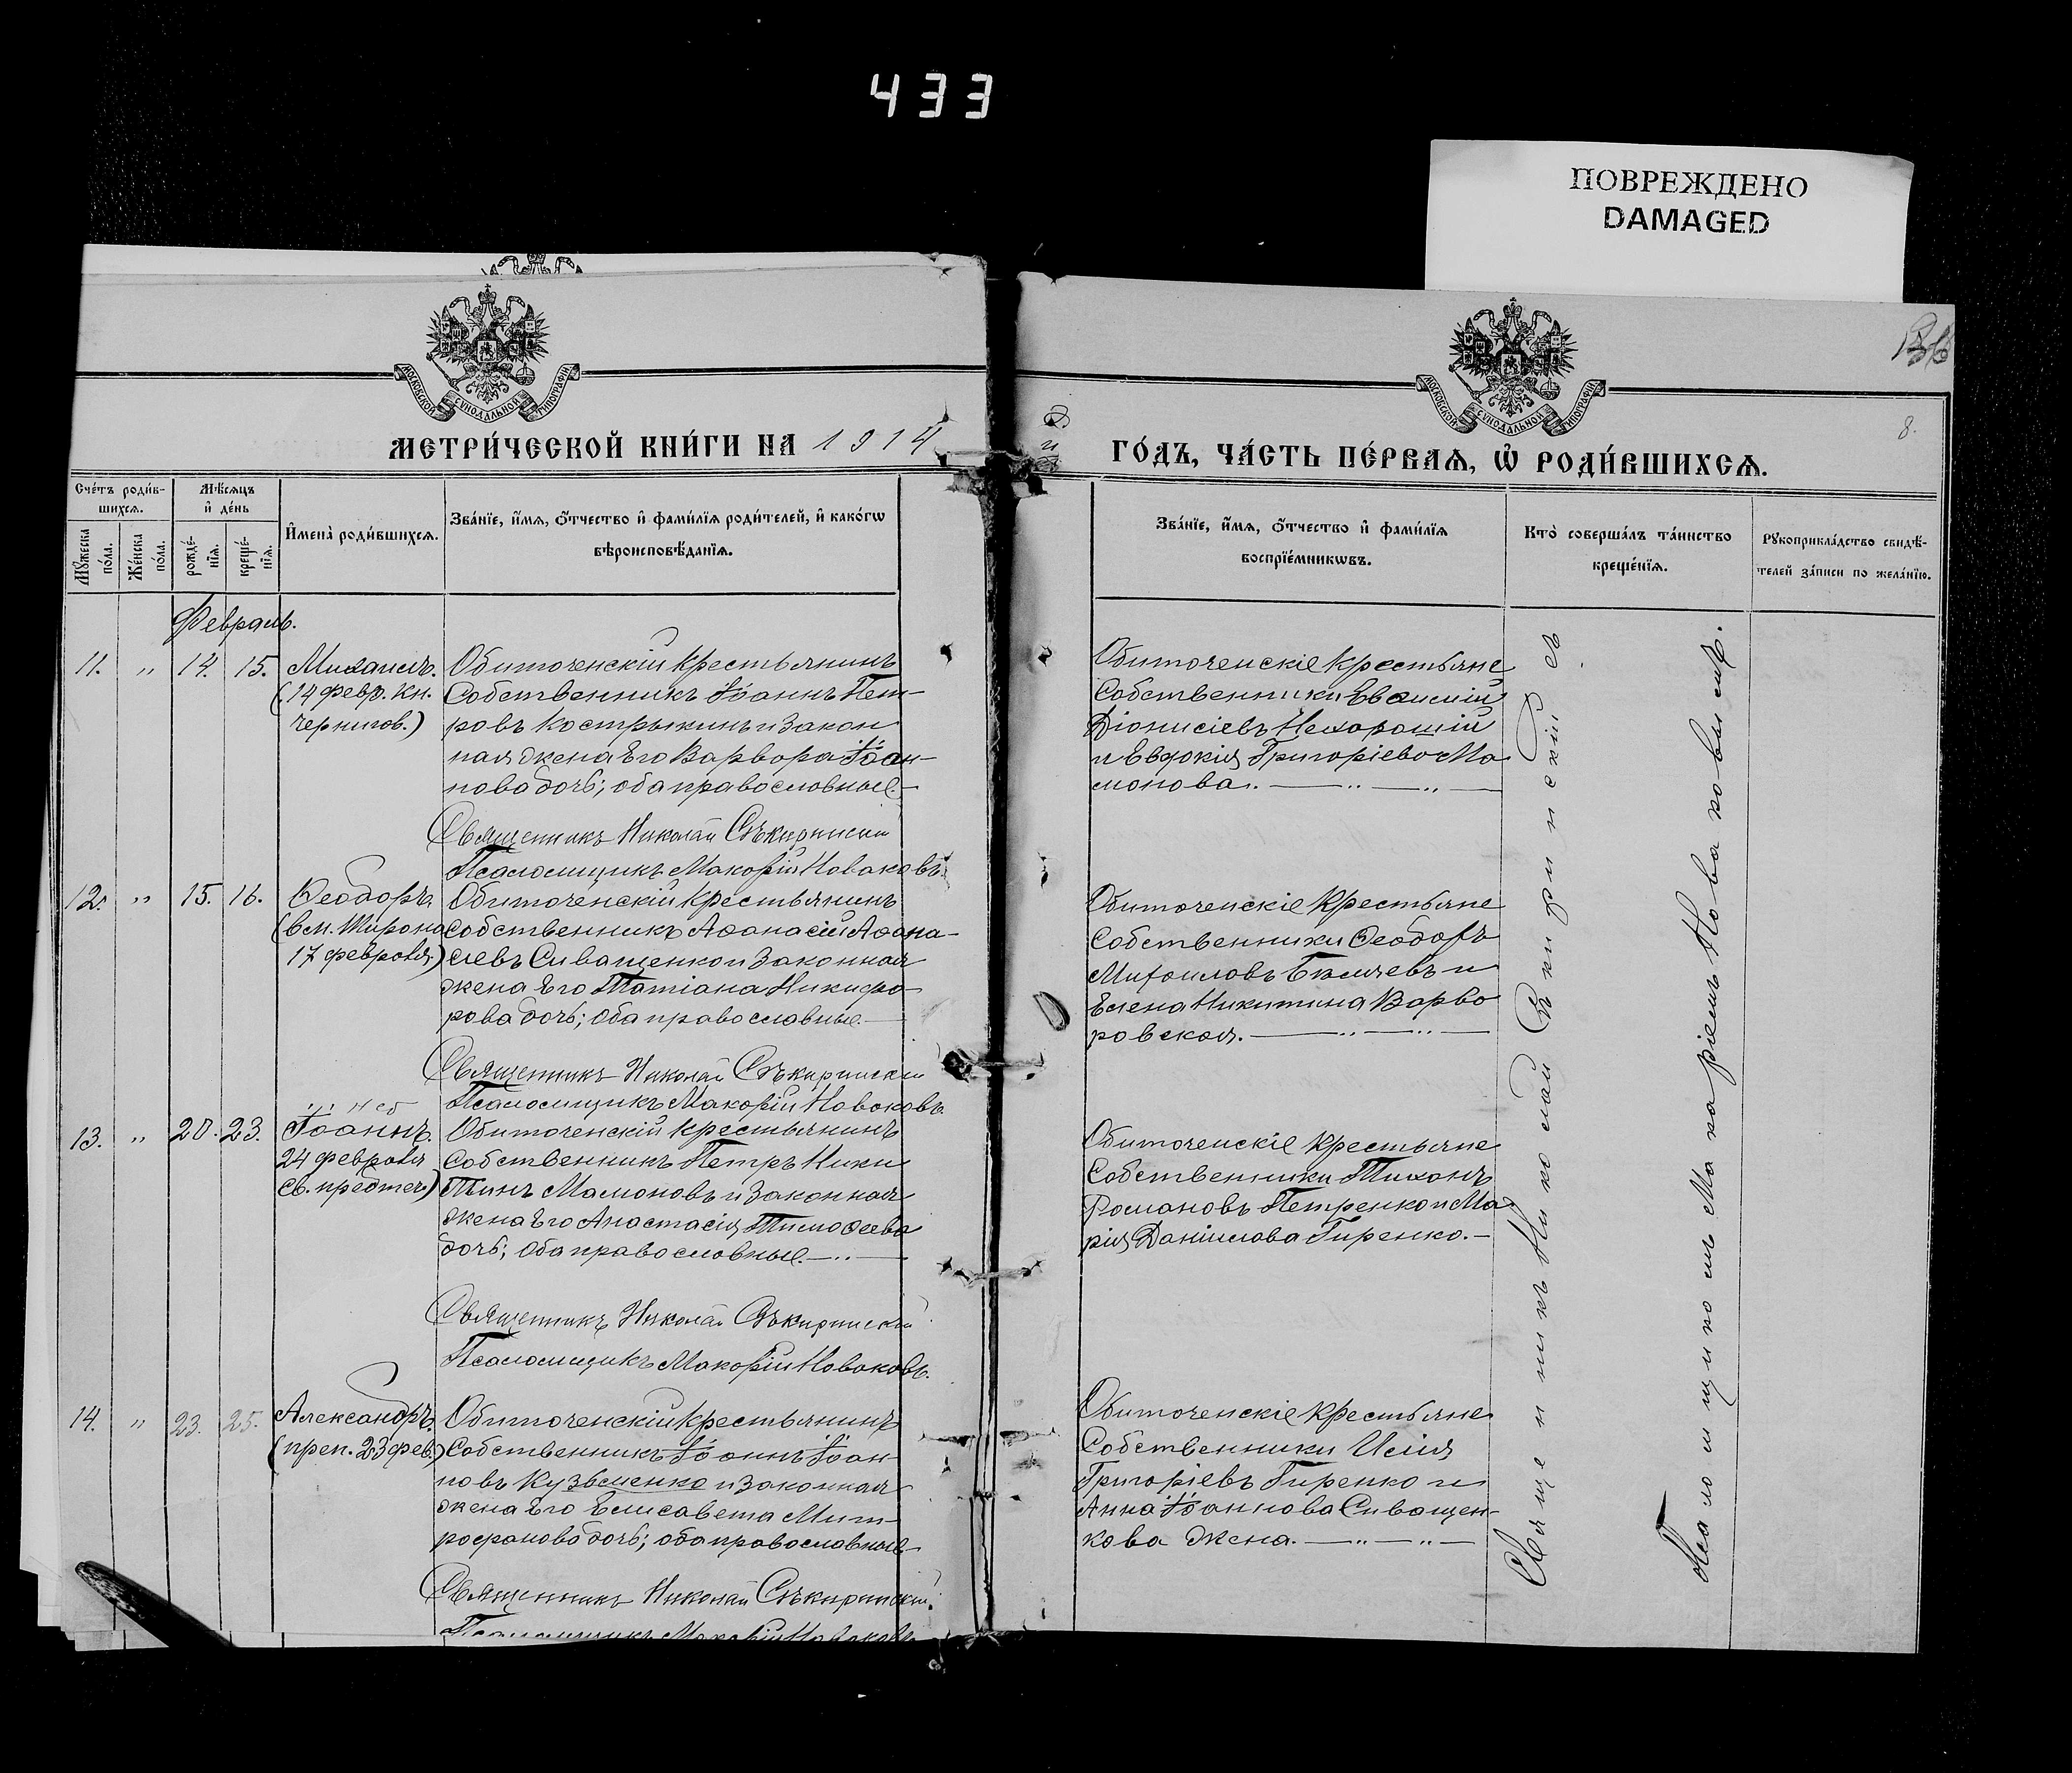 433
ПОВРЕЖДЕНО
DAMAGED
МОСКОВСКОЙ СѴНОДАЛЬНОЙ ТИПОГРАФІИ
МОСКОВСКОЙ СѴНОДАЛЬНОЙ ТИПОГРАФІИ
8.
МЕТРИ́ЧЕСКОЙ КНИ́ГИ НА 1914
ГО́ДЪ, ЧА́СТЬ ПЕ́РВАѦ, Ѡ҆ РОДИ́ВШИХСѦ.
Сче́тъ роди́в-
шихсѧ.
Мꙋ́жеска
по́ла.
Же́нска
по́ла.
Мѣ́сѧцъ
и҆ де́нь
рожде́-
нїѧ.
креще́-
нїѧ.
И҆мена̀ роди́вшихсѧ.
Зва́нїе, и҆́мѧ, ѻ҆́тчество и҆ фами́лїѧ роди́телей, и҆ како́гѡ
вѣроисповѣ́данїѧ.
Зва́нїе, и҆́мѧ, ѻ҆́тчество и҆ фами́лїѧ
воспрїе́мникѡвъ.
Кто̀ соверша́лъ та́инство
креще́нїѧ.
Рꙋкоприкла́дство свидѣ́-
телей за́писи по жела́нїю.
Февраль.
11. " 14. 15. Михаилъ.
(14 февр. Кн.
Чернигов.)
Обиточенскій крестьянинъ
Собственникъ Іоаннъ Пет-
ровъ Кострыкинъ и закон
ная жена Его Варвара Іоан-
нова дочь; оба православные
Священникъ Николай Сѣкиринскій
Псаломщикъ Макарій Новаковъ.
Обиточенскіе крестьяне
Собственники Евѳимій
Діонисіевъ Нехорошій
и Евдокія Григоріева Ма
монова.
12. " 15. 16. Ѳеодоръ.
(вм. Тирона
17 февраля.)
Обиточенскій крестьянинъ
Собственникъ Аѳанасій Аѳана-
сіевъ Сиващенко и законная
жена Его Татіана Никифо-
рова дочь; оба православные.
Священникъ Николай Сѣкиринскій
Псаломщикъ Макарій Новаковъ.
Обиточенскіе крестьяне
Собственники Ѳеодоръ
Михаиловъ Бѣляевъ и
Елена Никитина Варва
ровская.
13. " 20. 23. Іоаннъ.
24 февраля
Св. предтеч.)
Обиточенскій крестьянинъ
Собственникъ Петръ Ники
тинъ Мамоновъ и законная
жена Его Анастасія Тимоѳеева
дочь; оба православные.
Священникъ Николай Сѣкиринскій
Псаломщикъ Макарій Новаковъ.
Обиточенскіе крестьяне
Собственники Тихонъ
Романовъ Петренко и Ма
рія Даніилова Гиренко.
14. " 23. 25. Александръ.
(преп. 23 фев.)
Обиточенскій крестьянинъ
Собственникъ Іоаннъ Іоан
новъ Кузьменко и законная
жена Его Елисавета Мит-
рофанова дочь; оба православные
Священникъ Николай Сѣкиринскій.
Псаломщикъ Макарій Новаковъ
Обиточенскіе крестьяне
Собственники Илія
Григоріевъ Гиренко и
Анна Іоаннова Сиващен-
кова жена.
Священникъ Николай Сѣкиринскій съ
Псаломщикомъ Макаріемъ Новаковымъ.